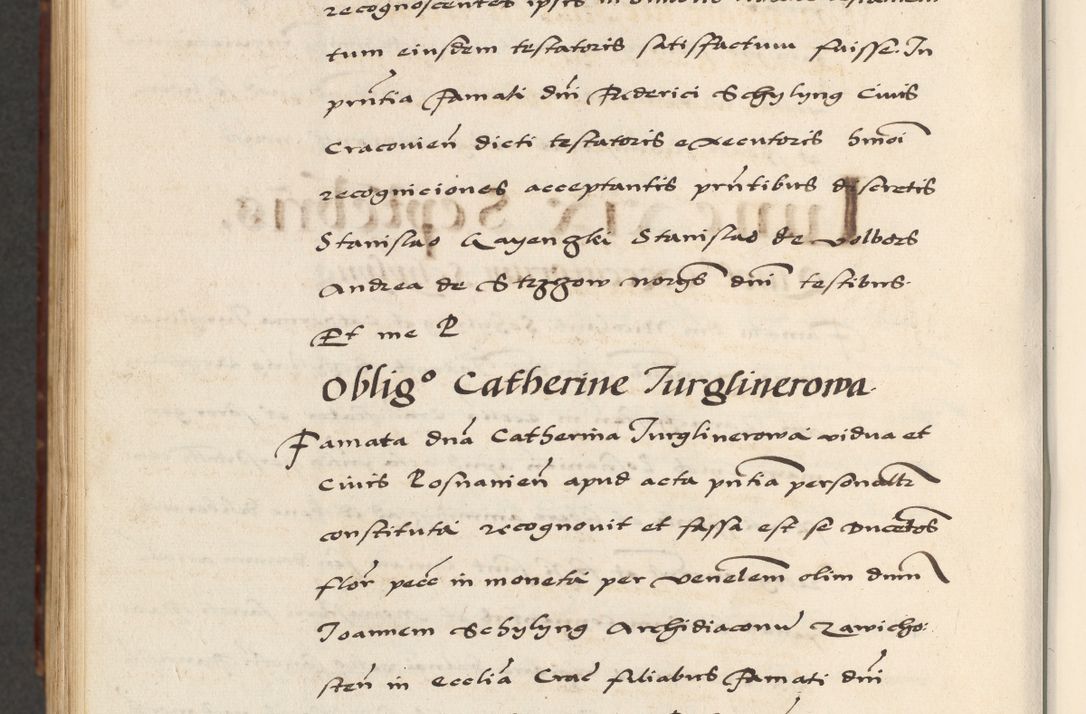 recognoscentes ipsis in
tum eiusdem testatoris satisfactum fuisse. In
pñtia Famati dñi Frederici Schylyng Civis
Cracovieñ dicti testatoris executoris hmoi
recogniciones acceptantis pñtibus discretis
Stanislao Stanislao de Volbors
Andrea de Strzgow dñi testibus.
Et me P
Obligᵒ Catherine Turglinerowa.
Famata dña Catherina Turglinerowa vidua et
Civis Posnanieñ apud acta pñtia personaltr
constituta recognovit et fassa est se Ducētos
flor pecc in moneta per Venelem olim dnm
Joannem Schylyng Archidiaconu Zawicho:
steñ in Ecclia Crac filiabus Famati dñi